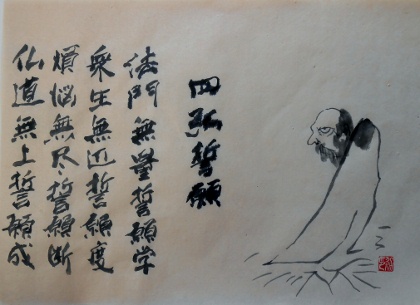 四弘誓願
法門無量誓願学
衆生無辺誓願度
煩悩無尽誓願断
仏道無上誓願成